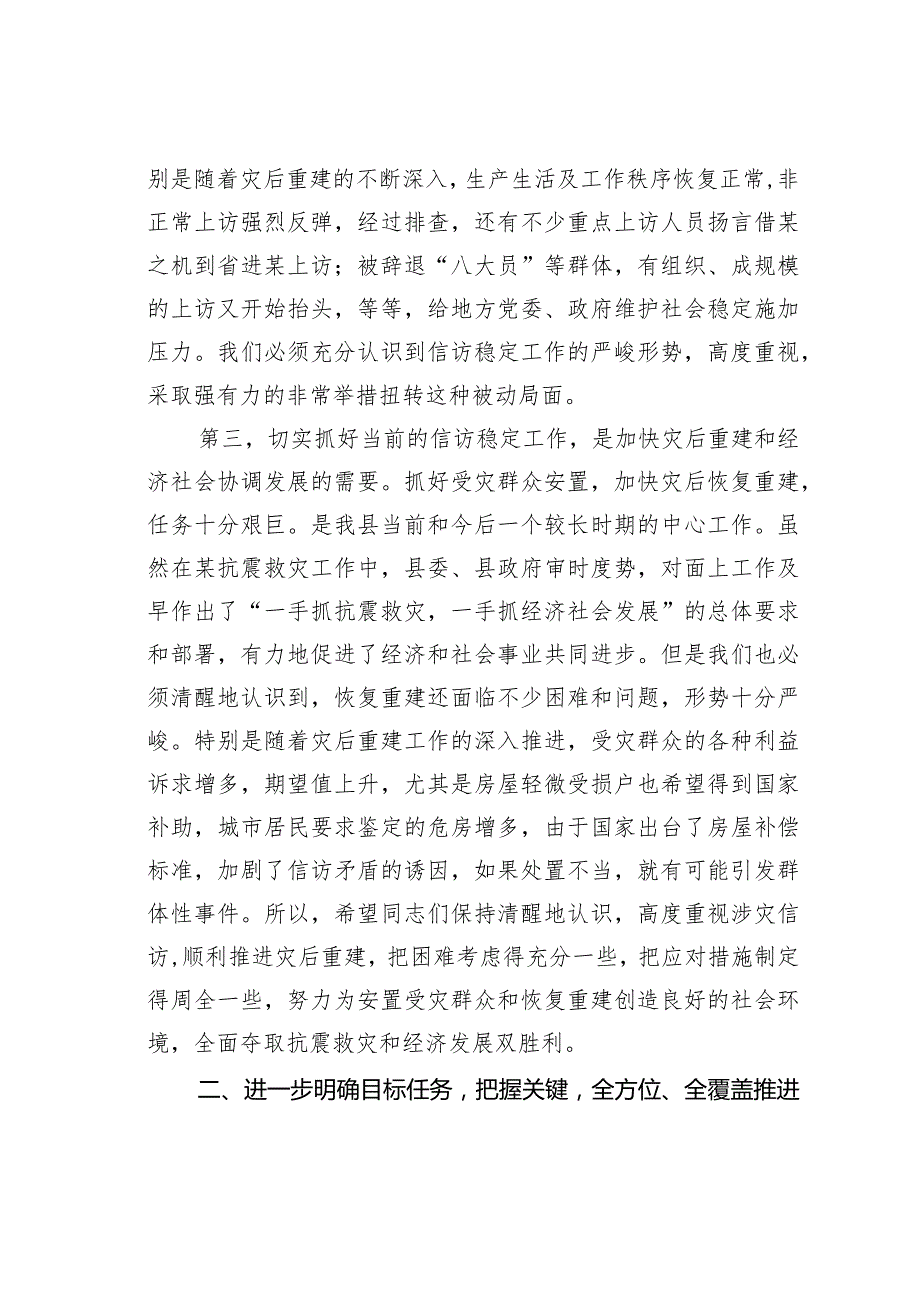 别是随着灾后重建的不断深入，生产生活及工作秩序恢复正常,非
正常上访强烈反弹，经过排查，还有不少重点上访人员扬言借某
之机到省进某上访；被辞退“八大员”等群体，有组织、成规模
的上访又开始抬头，等等，给地方党委、政府维护社会稳定施加
压力。我们必须充分认识到信访稳定工作的严峻形势，高度重视，
采取强有力的非常举措扭转这种被动局面。
第三，切实抓好当前的信访稳定工作，是加快灾后重建和经
济社会协调发展的需要。抓好受灾群众安置，加快灾后恢复重建，
任务十分艰巨。是我县当前和今后一个较长时期的中心工作。虽
然在某抗震救灾工作中，县委、县政府审时度势，对面上工作及
早作出了“一手抓抗震救灾，一手抓经济社会发展”的总体要求
和部署，有力地促进了经济和社会事业共同进步。但是我们也必
须清醒地认识到，恢复重建还面临不少困难和问题，形势十分严
峻。特别是随着灾后重建工作的深入推进，受灾群众的各种利益
诉求增多，期望值上升，尤其是房屋轻微受损户也希望得到国家
补助，城市居民要求鉴定的危房增多，由于国家出台了房屋补偿
标准，加剧了信访矛盾的诱因，如果处置不当，就有可能引发群
体性事件。所以，希望同志们保持清醒地认识，高度重视涉灾信
访,顺利推进灾后重建，把困难考虑得充分一些，把应对措施制定
得周全一些，努力为安置受灾群众和恢复重建创造良好的社会环
境，全面夺取抗震救灾和经济发展双胜利。
二、进一步明确目标任务，把握关键，全方位、全覆盖推进